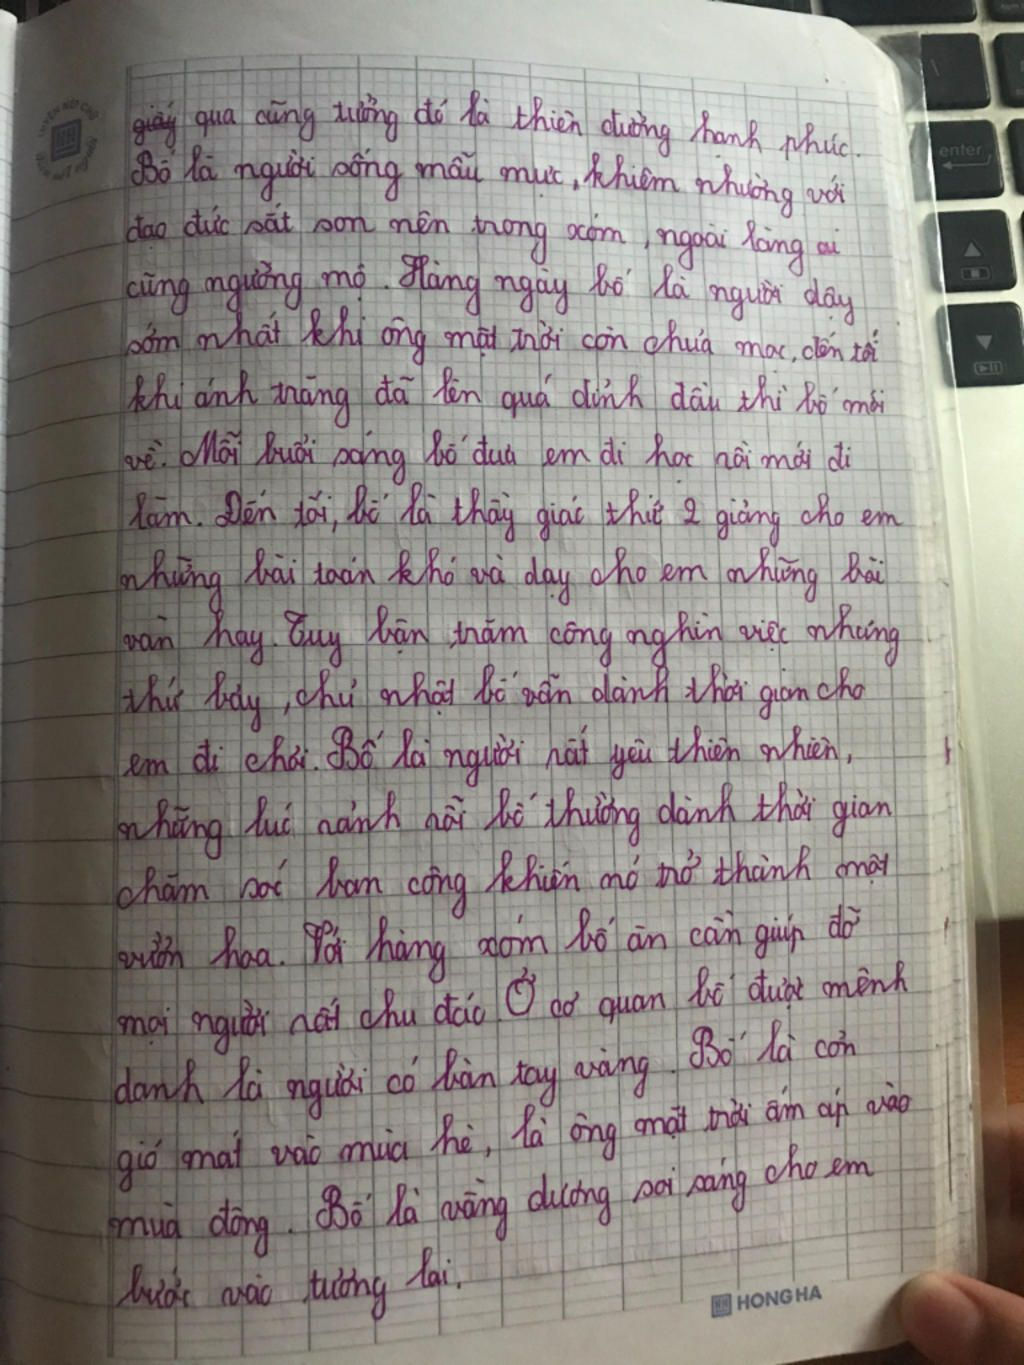 giấy qua cũng tưởng đó là thiên đường hạnh phúc.
Bố là người sống mẫu mực, khiêm nhường với
đạo đức sắt son nên trong xóm, ngoài làng ai
cũng ngưỡng mộ. Hàng ngày bố là người dậy
sớm nhất khi ông mặt trời còn chưa mọc, đến tối
khi ánh trăng đã lên quá đỉnh đầu thì bố mới
về. Mỗi buổi sáng bố đưa em đi học rồi mới đi
làm. Đến tối, bố là thầy giáo thứ 2 giảng cho em
những bài toán khó và dạy cho em những bài
văn hay. Tuy bận trăm công nghìn việc nhưng
thứ bảy, chủ nhật bố vẫn dành thời gian cho
em đi chơi. Bố là người rất yêu thiên nhiên,
những lúc rảnh rỗi bố thường dành thời gian
chăm sóc ban công khiến nó trở thành một
vườn hoa. Với hàng xóm bố ân cần giúp đỡ
mọi người rất chu đáo. Ở cơ quan bố được mệnh
danh là người có bàn tay vàng. Bố là cơn
gió mát vào mùa hè, là ông mặt trời ấm áp vào
mùa đông. Bố là vầng dương soi sáng cho em
bước vào tương lai.
HONG HA